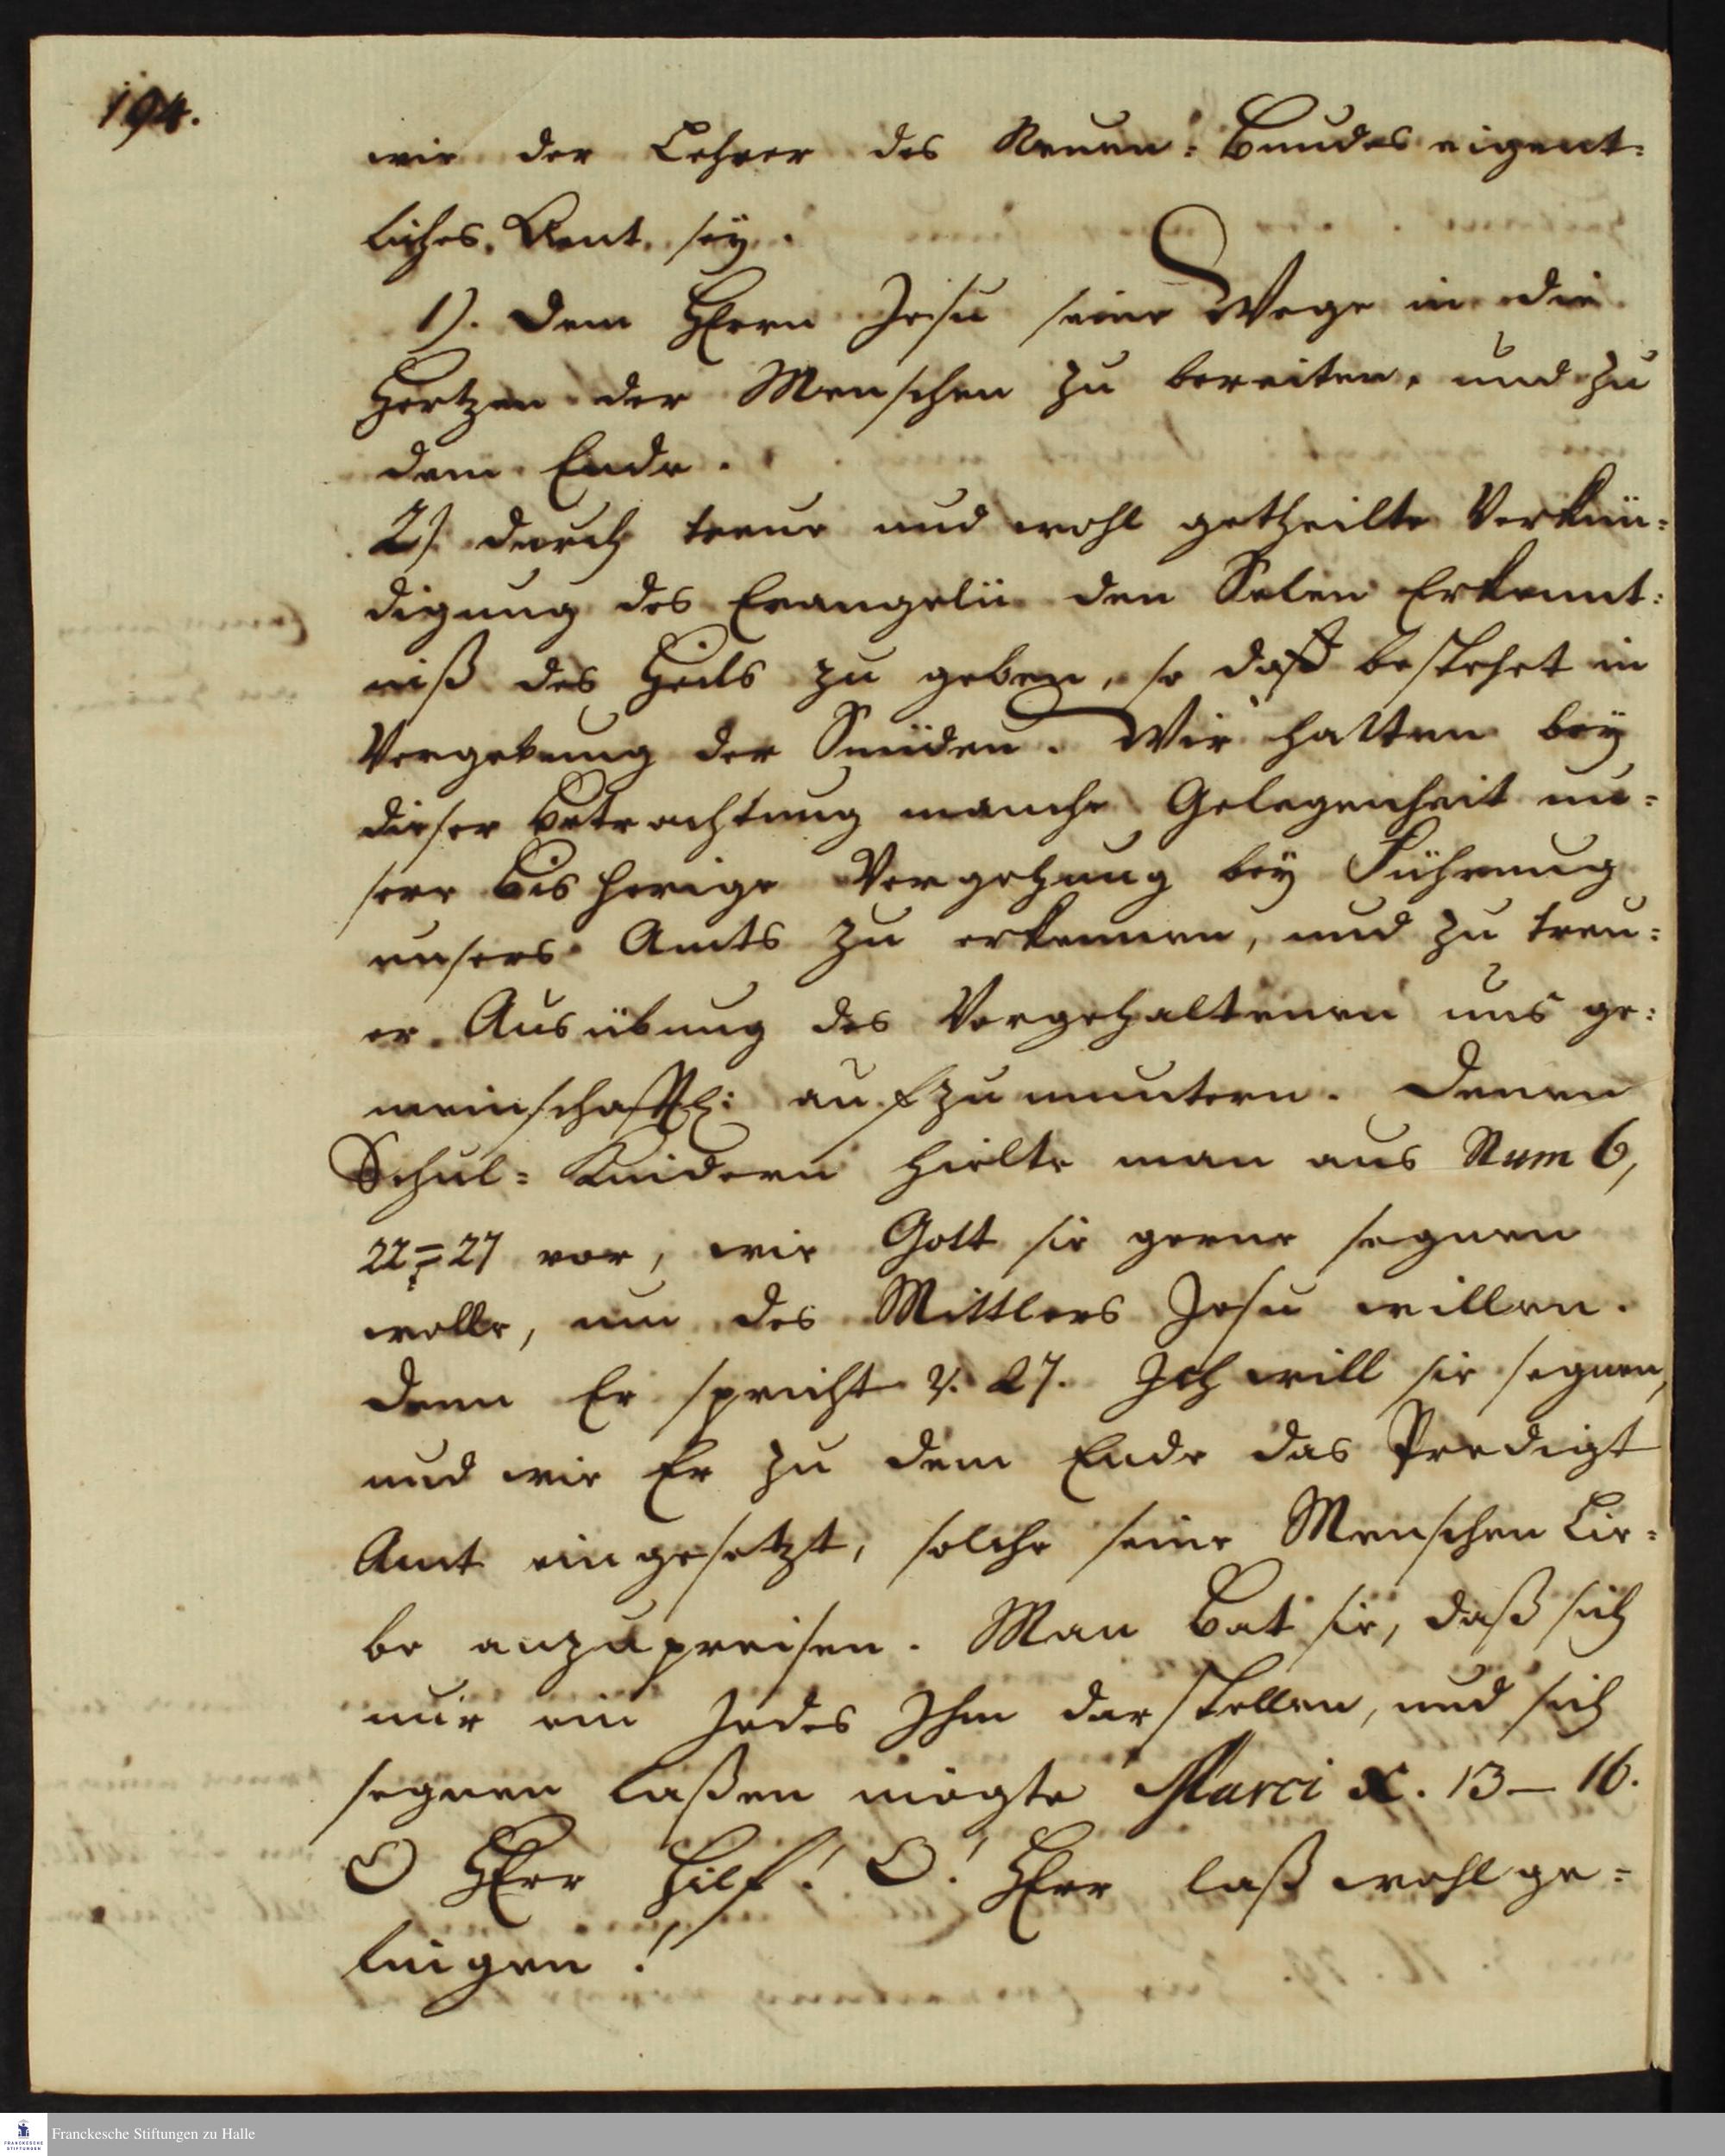 194.
wie der Lehrer des Neuen-Bundes eigent-
liches Amt sey.
1). Dem HErrn Jesu seine Wege in die
Hertzen der Menschen zu bereiten, und zu
dem Ende.
2). durch treue und wohl getheilte Verkün-
digung des Evangelii den Selen Erkennt-
niß des Heils zu geben, so daß bestehet in
Vergebung der Sünden. Wir hatten bey
dieser Betrachtung manche Gelegenheit un-
sere bisherige Vergehung bey Führung
unsers Amts zu erkennen, und zu treu-
er Ausübung des Vorgehaltenen uns ge-
meinschaftl: aufzumuntern. Denen
Schul-Kindern hielte man aus Num 6,
22-27 vor, wie Gott sie gerne segnen
wolle, um des Mittlers Jesu willen.
Denn Er spricht v. 27. Ich will sie segnen,
und wie Er zu dem Ende das Predigt
Amt eingesetzt, solche seine Menschen Lie-
be anzupreisen. Man bat sie, daß sich
nur ein Jedes Ihm darstellen, und sich
segnen laßen mögte Marci X. 13-16.
O HErr hilf! O! HErr laß wohl ge-
lingen!
Franckesche Stiftungen zu Halle
FRANCKESCHE
STIFTUNGEN